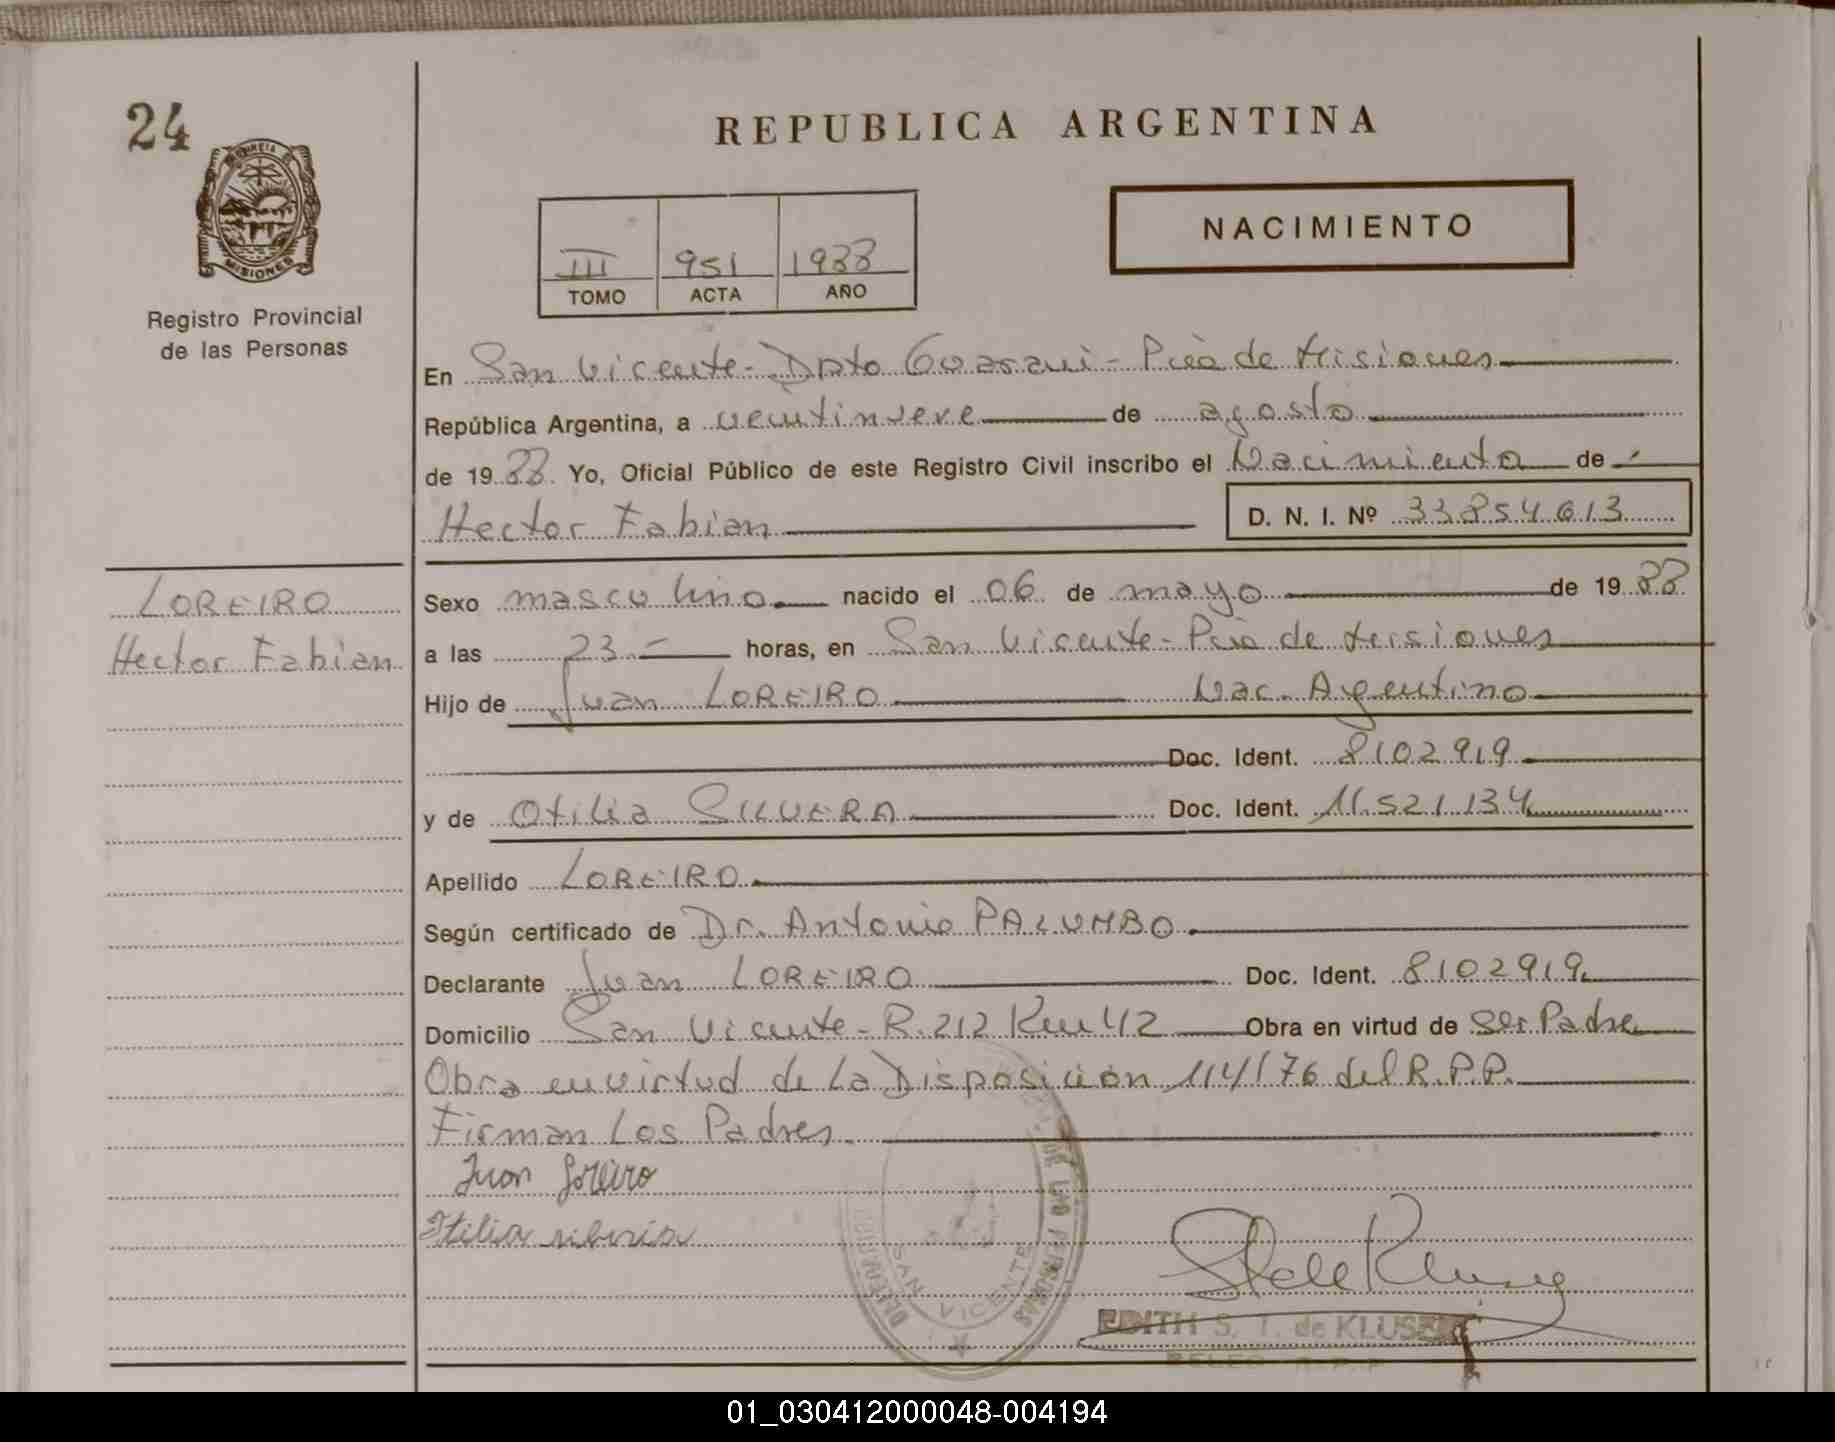 24
PROVINCIA DE
MISIONES
Registro Provincial
de las Personas
REPUBLICA ARGENTINA
III 951 1988
TOMO ACTA AÑO
NACIMIENTO
En San Vicente - Dpto Guarani - Pcia de Misiones
República Argentina, a veintinueve de agosto
de 1988. Yo, Oficial Público de este Registro Civil inscribo el Nacimiento de
Hector Fabian D. N. I. Nº 33854613
LOREIRO
Hector Fabian
Sexo masculino nacido el 06 de mayo de 1988
a las 23 horas, en San Vicente - Pcia de Misiones
Hijo de Juan LOREIRO Nac. Argentino
Doc. Ident. 8102919
y de Otilia SILVERA Doc. Ident. 11.521.134
Apellido LOREIRO
Según certificado de Dr. Antonio PALUMBO
Declarante Juan LOREIRO Doc. Ident. 8102919
Domicilio San Vicente - R. 212 Km 42 Obra en virtud de ser Padre
Obra en virtud de La Disposición 114/76 del R.P.P.
Firman Los Padres.
Juan Loreiro
DE LAS PERSONAS
SAN VICENTE
EDITH S. T. de KLUSE
01_030412000048-004194